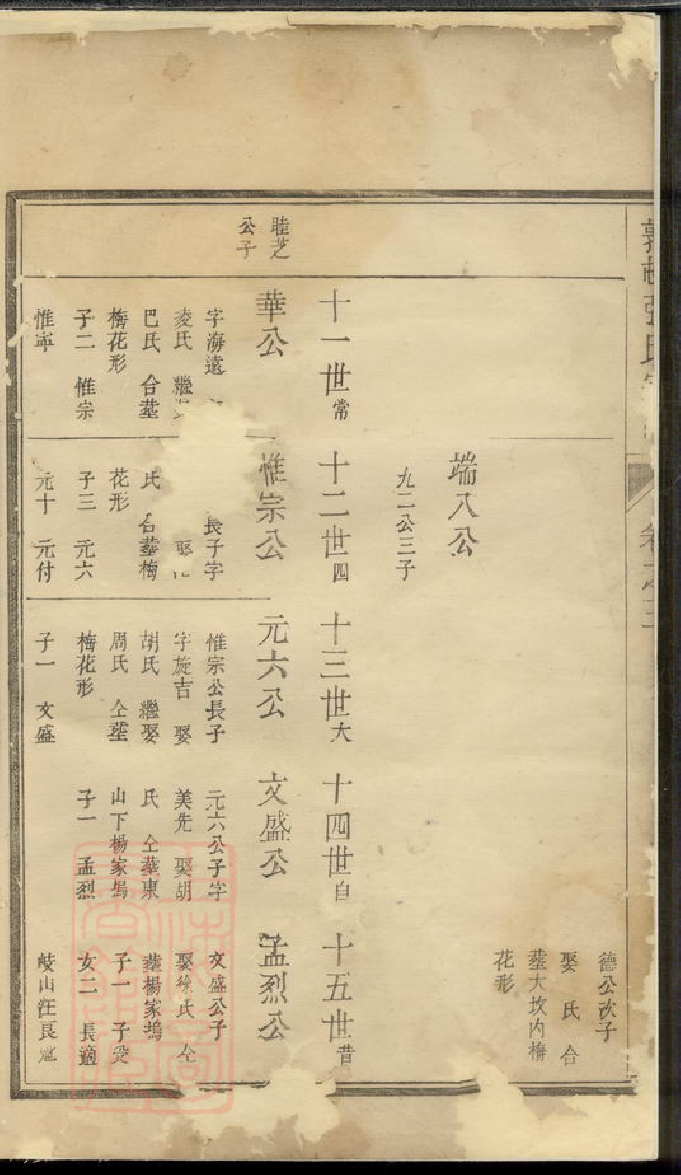 卷之三
德公次子
娶 氏 合
塟大坎内梅
花形
端八公
九二公三子
十一世常
十二世四
十三世大
十四世白
十五世昔
睦芝
公子
華公
字海遠
凌氏 繼
巴氏 合塟
梅花形
子二 惟宗
惟寧
惟宗公
長子字
娶
氏 合塟梅
花形
子三 元六
元十 元付
元六公
惟宗公長子
字旋吉 娶
胡氏 繼娶
周氏 仝塟
梅花形
子一 文盛
文盛公
元六公子字
美先 娶胡
氏 仝塟東
山下楊家塢
子一 孟烈
孟烈公
文盛公子
娶徐氏 仝
塟楊家塢
子一 子
女二 長適
岐山汪長